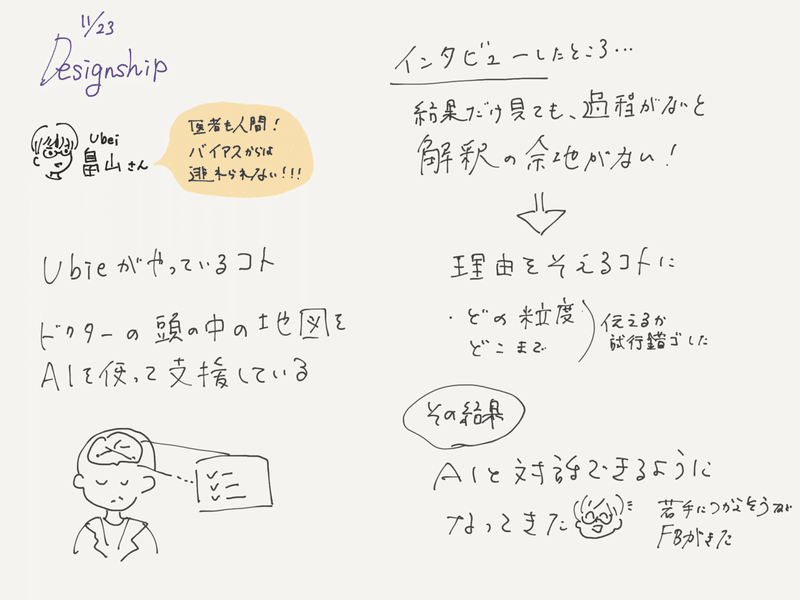 11/23
Designship
Ubei
畠山さん
医者も人間!
バイアスからは
逃れられない!!!
Ubieがやっているコト
ドクターの頭の中の地図を
AIを使って支援している
インタビューしたところ…
結果だけ見ても、過程がないと
解釈の余地がない!
理由をそえるコトに
・どの粒度
どこまで
伝えるか
試行錯ゴした
その結果
AIと対話できるように
なってきた
若手につかえそうなど
FBがきた